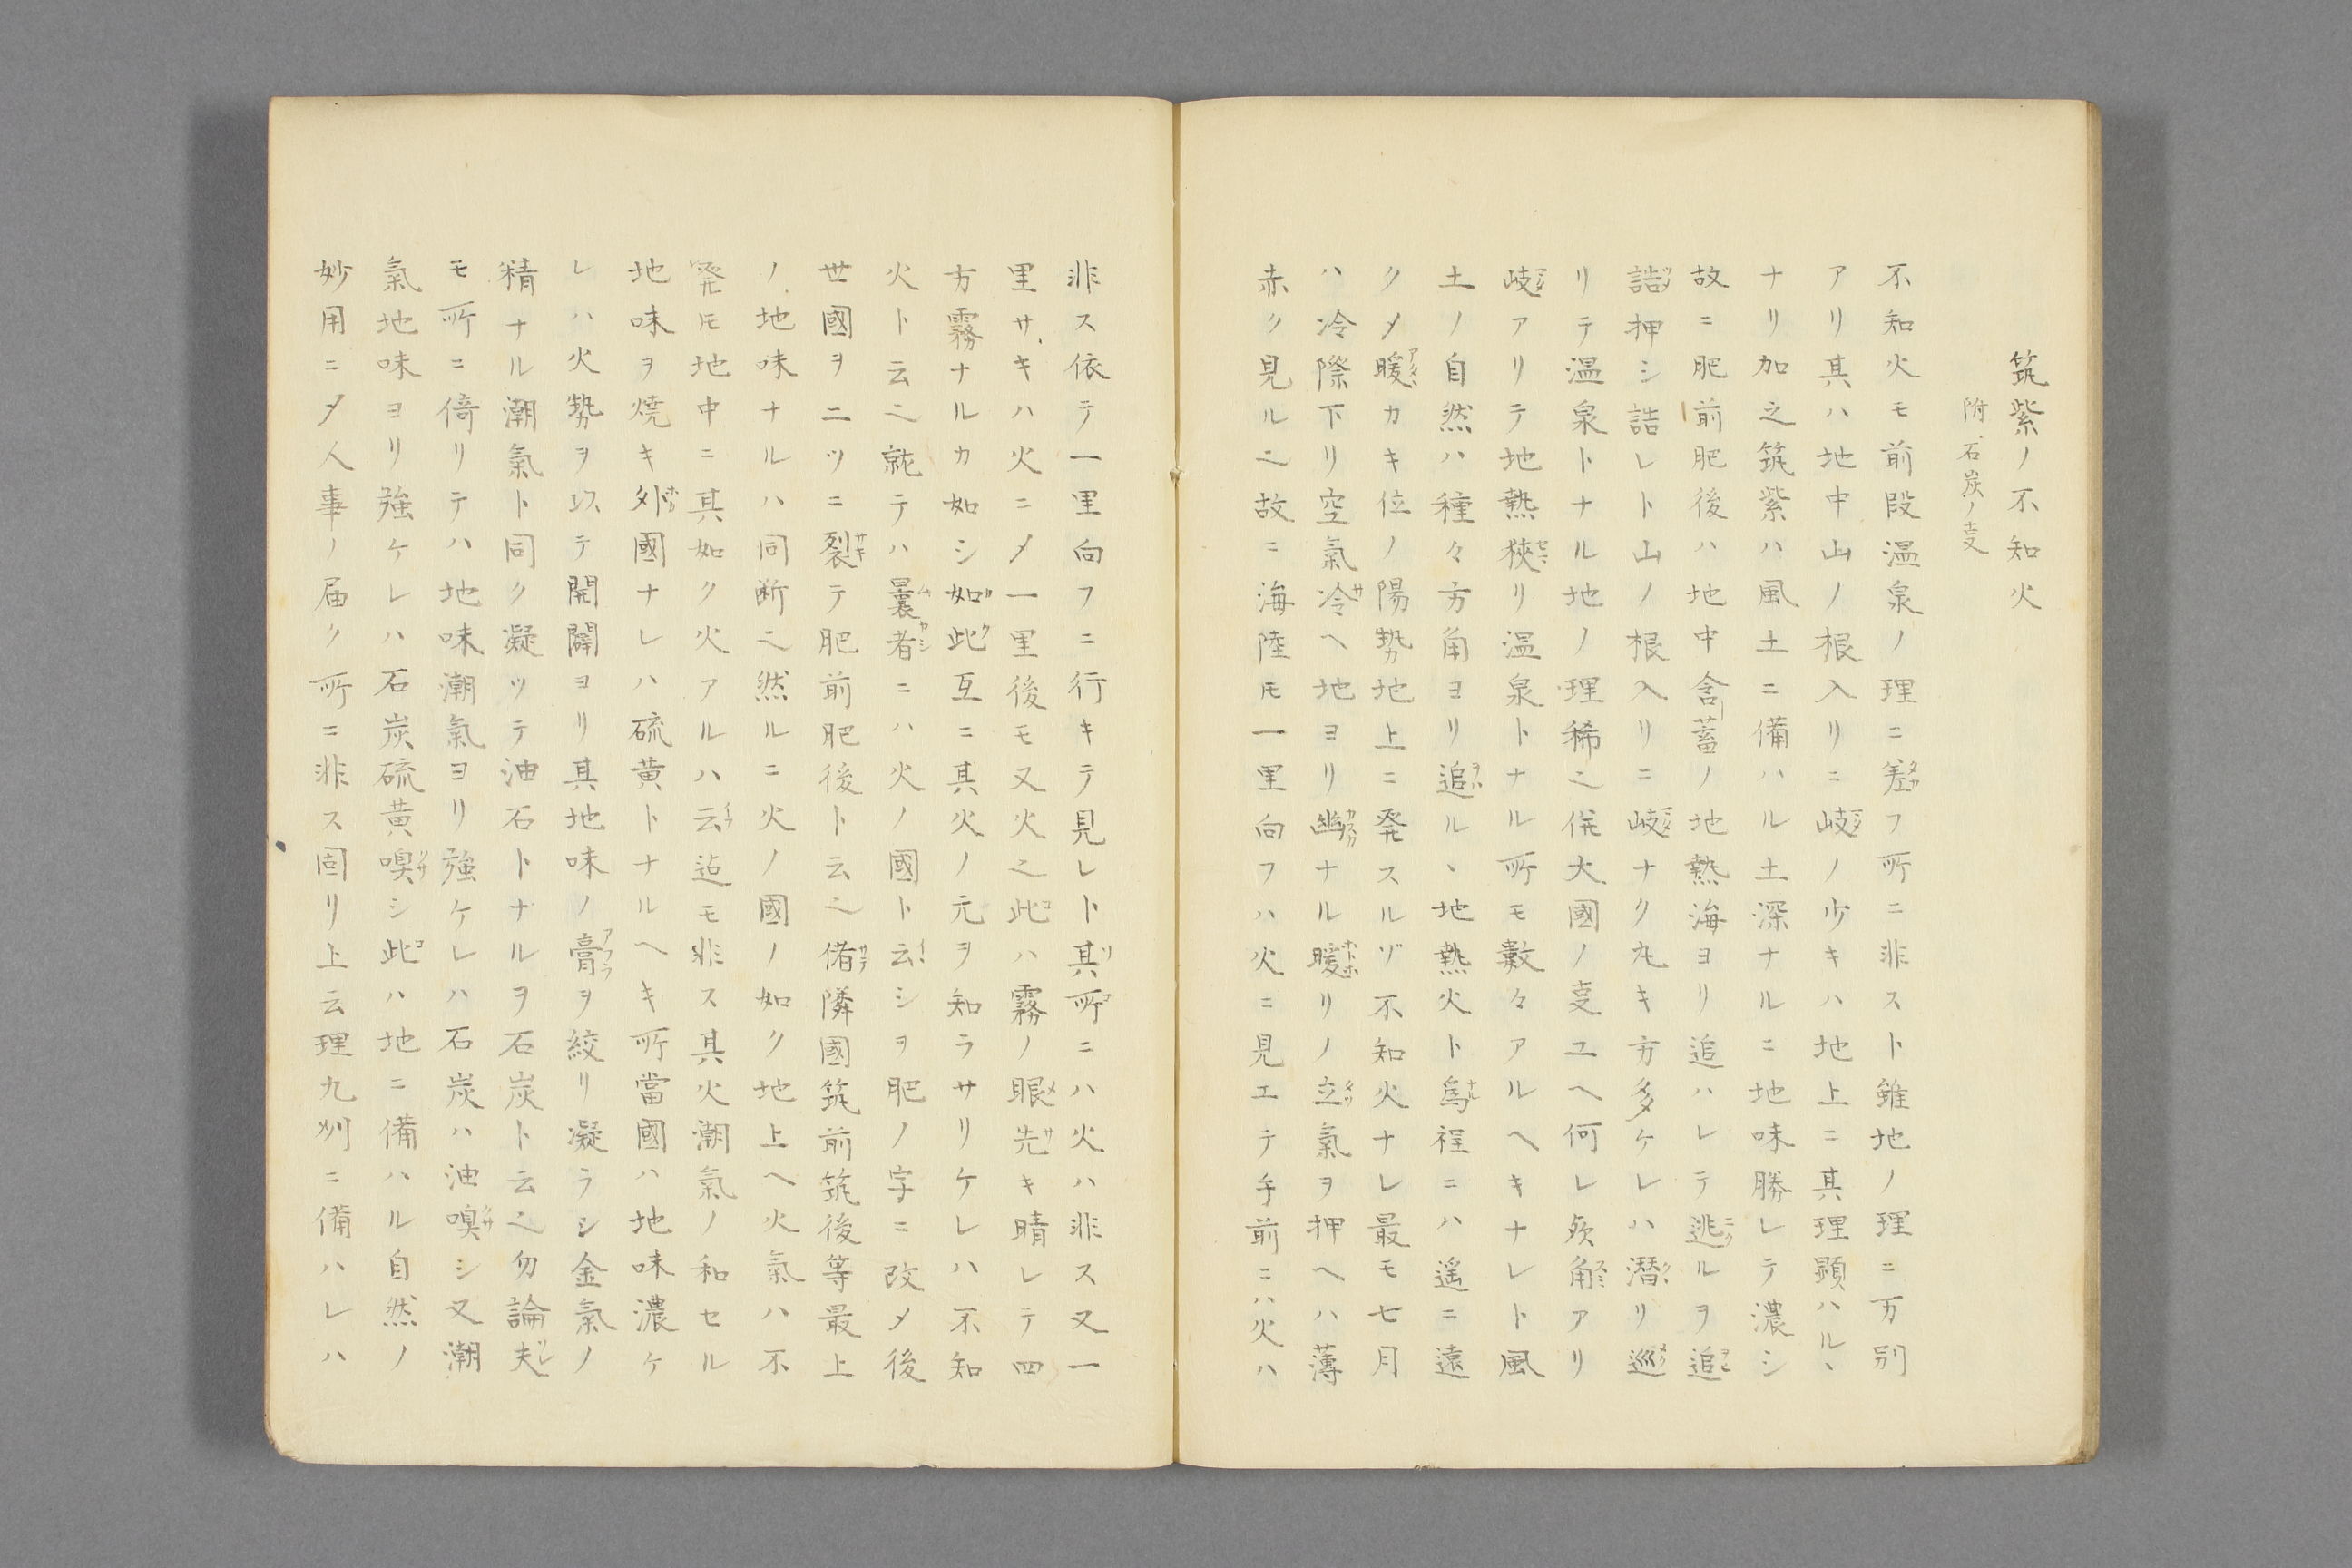 筑紫ノ不知火
附石炭ノ叓
不知火モ前段温泉ノ理ニ差フ所ニ非スト雖地ノ理ニ万別
アリ其ハ地中山ノ根入リニ岐ノ少キハ地上ニ其理顕ハルヽ
ナリ加之筑紫ハ風土ニ備ハル土深ナルニ地味勝レテ濃シ
故ニ肥前肥後ハ地中含蓄ノ地熱海ヨリ追ハレテ逃ルヲ追
詰押シ詰レト山ノ根入リニ岐ナク丸キ方多ケレハ潜リ巡
リテ温泉トナル地ノ理稀ニ侭火國ノ叓ユヘ何レ歟角アリ
岐アリテ地熱狹リ温泉トナル所モ數々アルヘキナレト風
土ノ自然ハ種々方角ヨリ追ルヽ地熱火ト為程ニハ遥ニ遠
クメ暖カキ位ノ陽勢地上ニ発スルヅ不知火ナレ最モ七月
ハ冷際下リ空氣冷ヘ地ヨリ幽ナル暖リノ立氣ヲ押ヘハ薄
赤ク見ルニ故ニ海陸モ一里向フハ火ニ見エテ手前ニハ火ハ
非ス依テ一里向フニ行キテ見レト其所ニハ火ハ非ス又一
里サキハ火ニメ一里後モ又火之此ハ霧ノ眼先キ晴レテ四
方霧ナルカ如シ如此互ニ其火ノ元ヲ知ラサリケレハ不知
火ト云之就テハ曩者ニハ火ノ國ト云シヲ肥ノ字ニ改メ後
世國ヲ二ツニ裂テ肥前肥後ト云之偖隣國筑前筑後等最上
ノ地味ナルハ同断之然ルニ火ノ國ノ如ク地上ヘ火氣ハ不
発モ地中ニ其如ク火アルハ云迠モ非ス其火潮氣ノ和セル
地味ヲ焼キ外國ナレハ硫黄トナルヘキ所當國ハ地味濃ケ
レハ火勢ヲ以テ開闢ヨリ其地味ノ膏ヲ絞リ凝ラシ金氣ノ
精ナル潮氣ト同ク凝ツテ油石トナルヲ石炭ト云之勿論夫
モ所ニ倚リテハ地味潮氣ヨリ強ケレハ石炭ハ油嗅シ又潮
氣地味ヨリ強ケレハ石炭硫黄嗅シ此ハ地ニ備ハル自然ノ
妙用ニメ人事ノ届ク所ニ非ス固リ上云理九州ニ備ハレハ